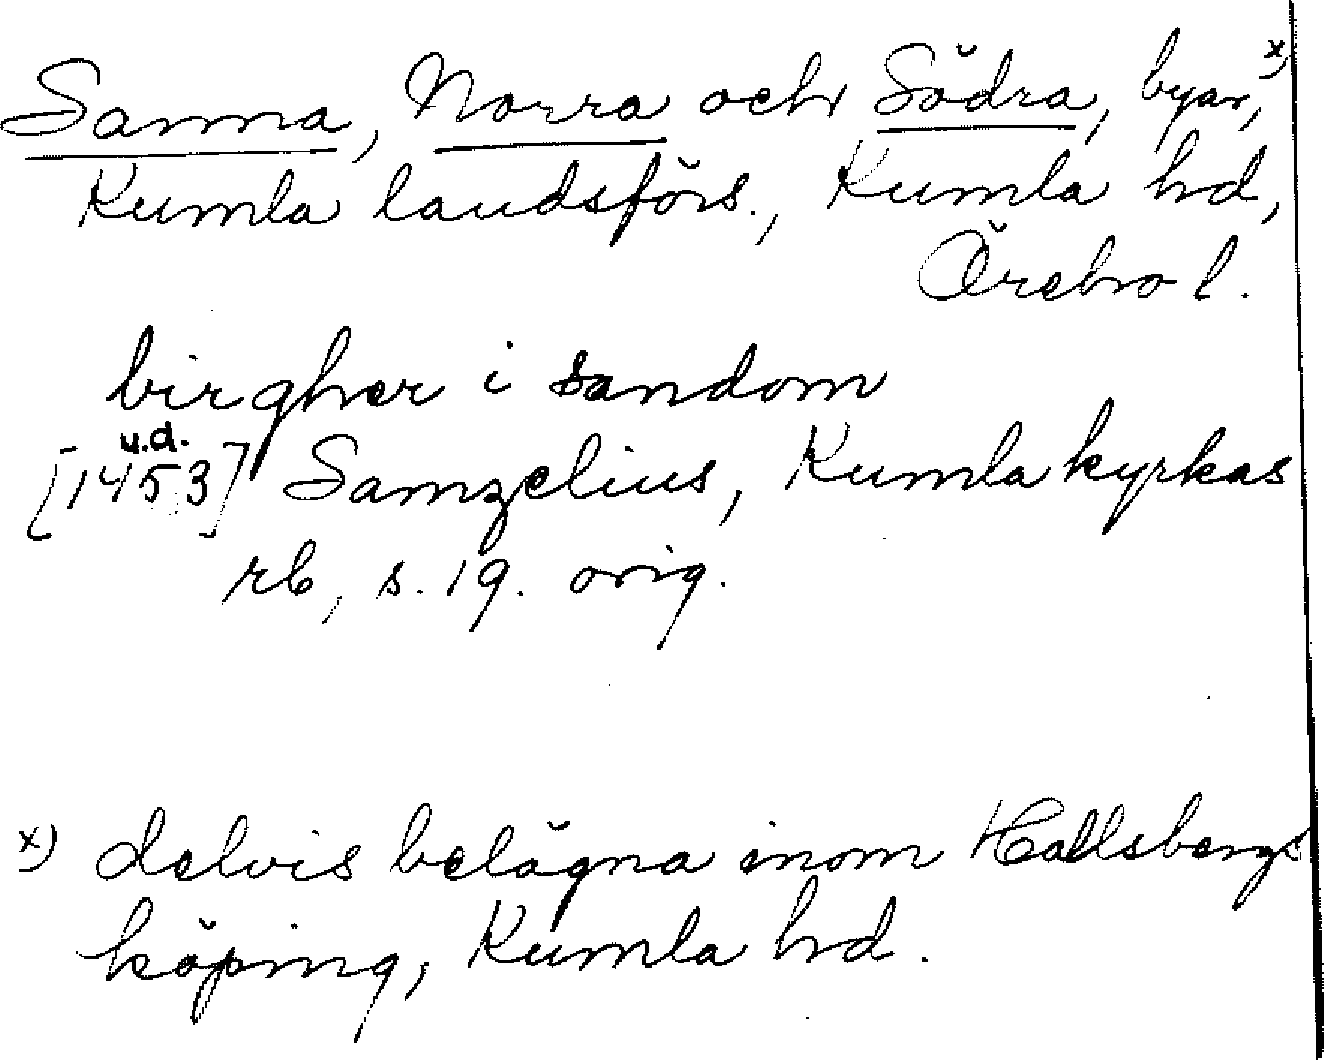 Sanna, Norra och Södra, byar, x)
Kumla landsförs., Kumla hd,
Örebro l.
birgher i sandom
u.d.
[1453] Samzelius, Kumla kyrkas
rb, s. 19. orig.
x) delvis belägna inom Hallsbergs
köping, Kumla hd.